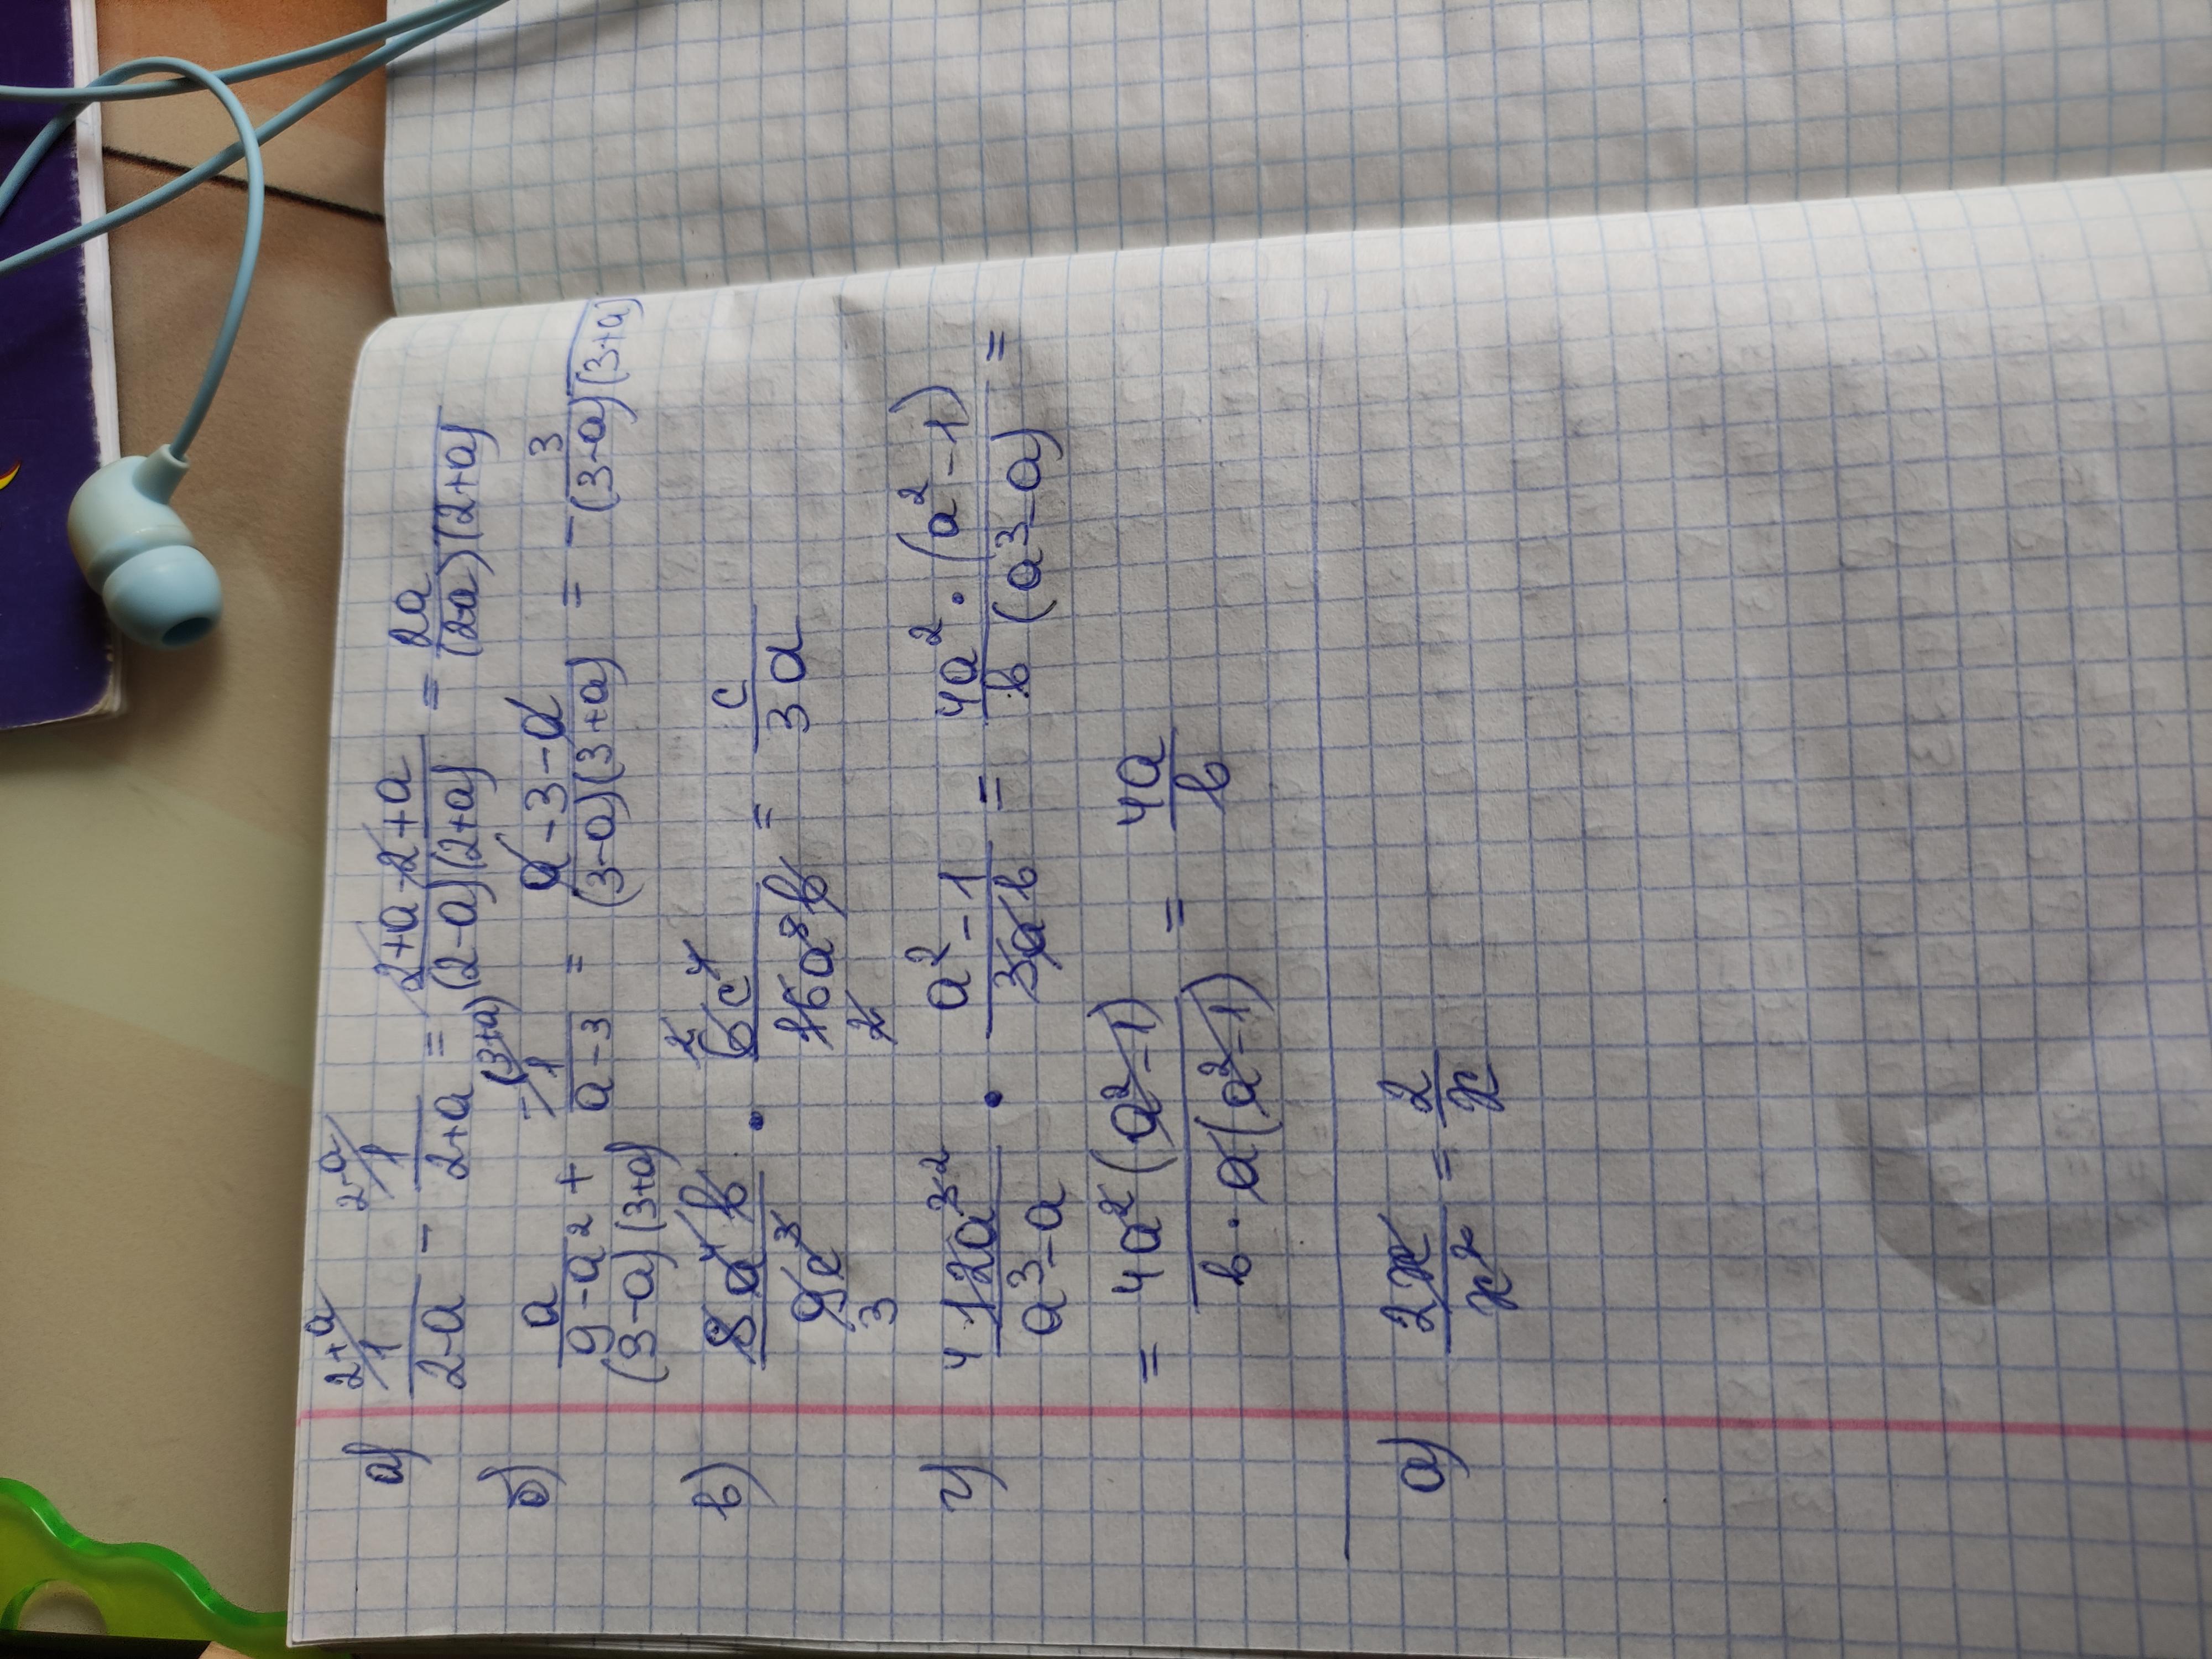 а) 2+a/1/(2-a) - 2-a/1/(2+a) = (2+a-2+a)/((2-a)(2+a)) = 2a/((2-a)(2+a))
б) a/(9-a²) + 1/(a-3) = (a-3-a)/((3-a)(3+a)) = -3/((3-a)(3+a))
(3-a)(3+a) -(3+a)
в) 8a⁷b/9c³ · 6c⁴/16a⁸b = c/3a
3 2 2
г) 4 12a³ ²/(a³-a) · (a²-1)/3ab = 4a² · (a²-1)/b(a³-a) =
= 4a²(a²-1)/b·a(a²-1) = 4a/b
а) 2x/x² = 2/x